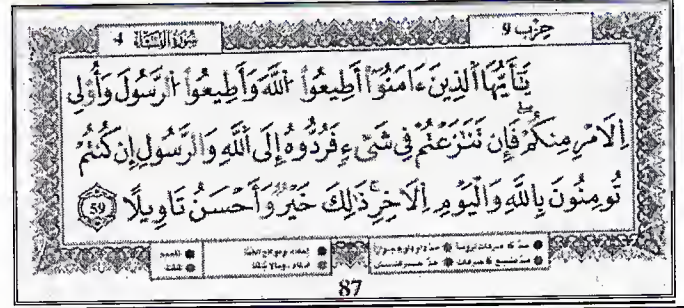 حزب 9
سُورَةُ النِّسَاء 4
يَٰٓأَيُّهَا اَ۬لذِينَ ءَامَنُوٓاْ أَطِيعُواْ اُ۬للَّهَ وَأَطِيعُواْ اُ۬لرَّسُولَ وَأُوْلِي
اِ۬لَامْرِ مِنكُمْۖ فَإِن تَنَٰزَعْتُمْ فِي شَيْءٖ فَرُدُّوهُ إِلَى اَ۬للَّهِ وَالرَّسُولِ إِن كُنتُمْ
تُومِنُونَ بِاللَّهِ وَالْيَوْمِ اِ۬لَاخِرِۚ ذَٰلِكَ خَيْرٞ وَأَحْسَنُ تَاوِيلًا 59
87